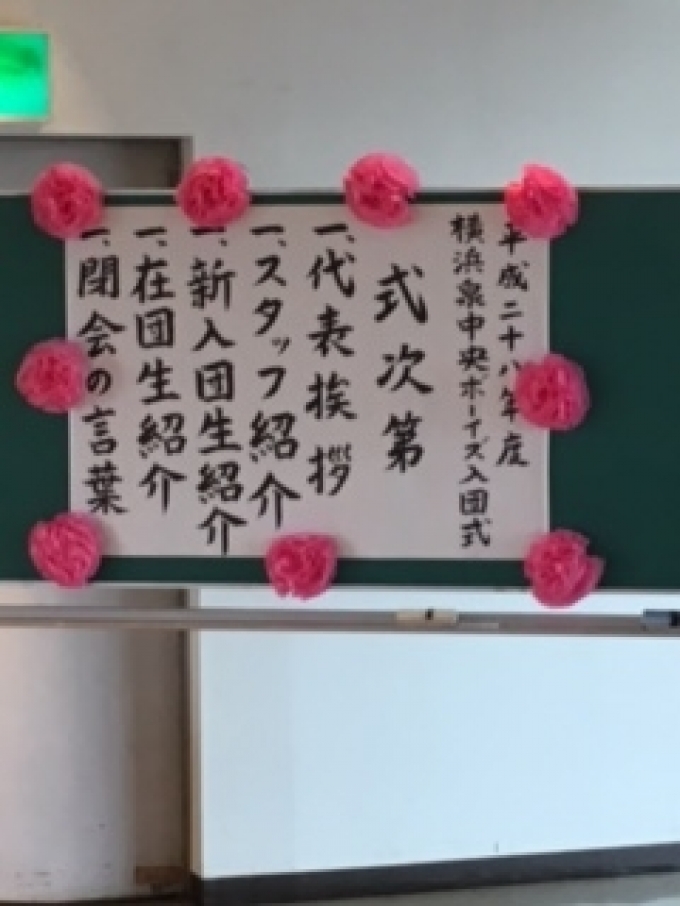 平成二十八年度
横浜泉中央ボーイズ入団式
式次第
一、代表挨拶
一、スタッフ紹介
一、新入団生紹介
一、在団生紹介
一、閉会の言葉